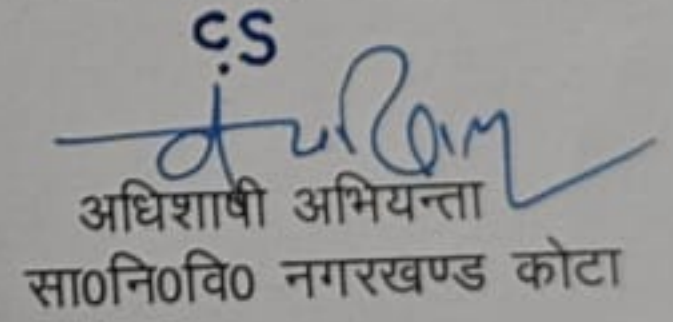 CS
अधिशाषी अभियन्ता
सा०नि०वि० नगरखण्ड कोटा